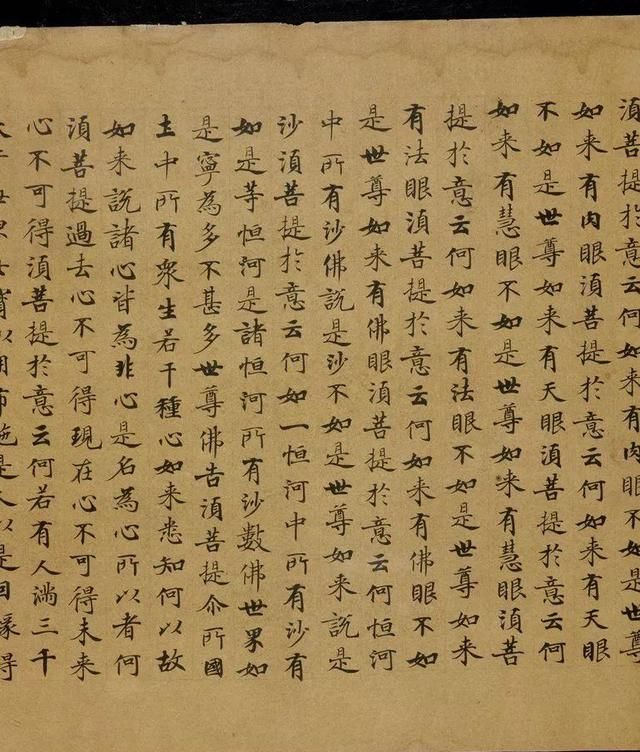 湏菩提於意云何如来有肉眼不如是世尊
如来有肉眼湏菩提於意云何如来有天眼
不如是世尊如来有天眼湏菩提於意云何
如来有慧眼不如是世尊如来有慧眼湏菩
提於意云何如来有法眼不如是世尊如来
有法眼湏菩提於意云何如来有佛眼不如
是世尊如来有佛眼湏菩提於意云何恒河
中所有沙佛說是沙不如是世尊如来說是
沙湏菩提於意云何如一恒河中所有沙有
如是等恒河是諸恒河所有沙數佛世界如
是寧為多不甚多世尊佛告湏菩提尒所國
土中所有衆生若干種心如来悉知何以故
如来說諸心皆為非心是名為心所以者何
湏菩提過去心不可得現在心不可得未来
心不可得湏菩提於意云何若有人滿三千
大千世界七寶以用布施是人以是因緣得